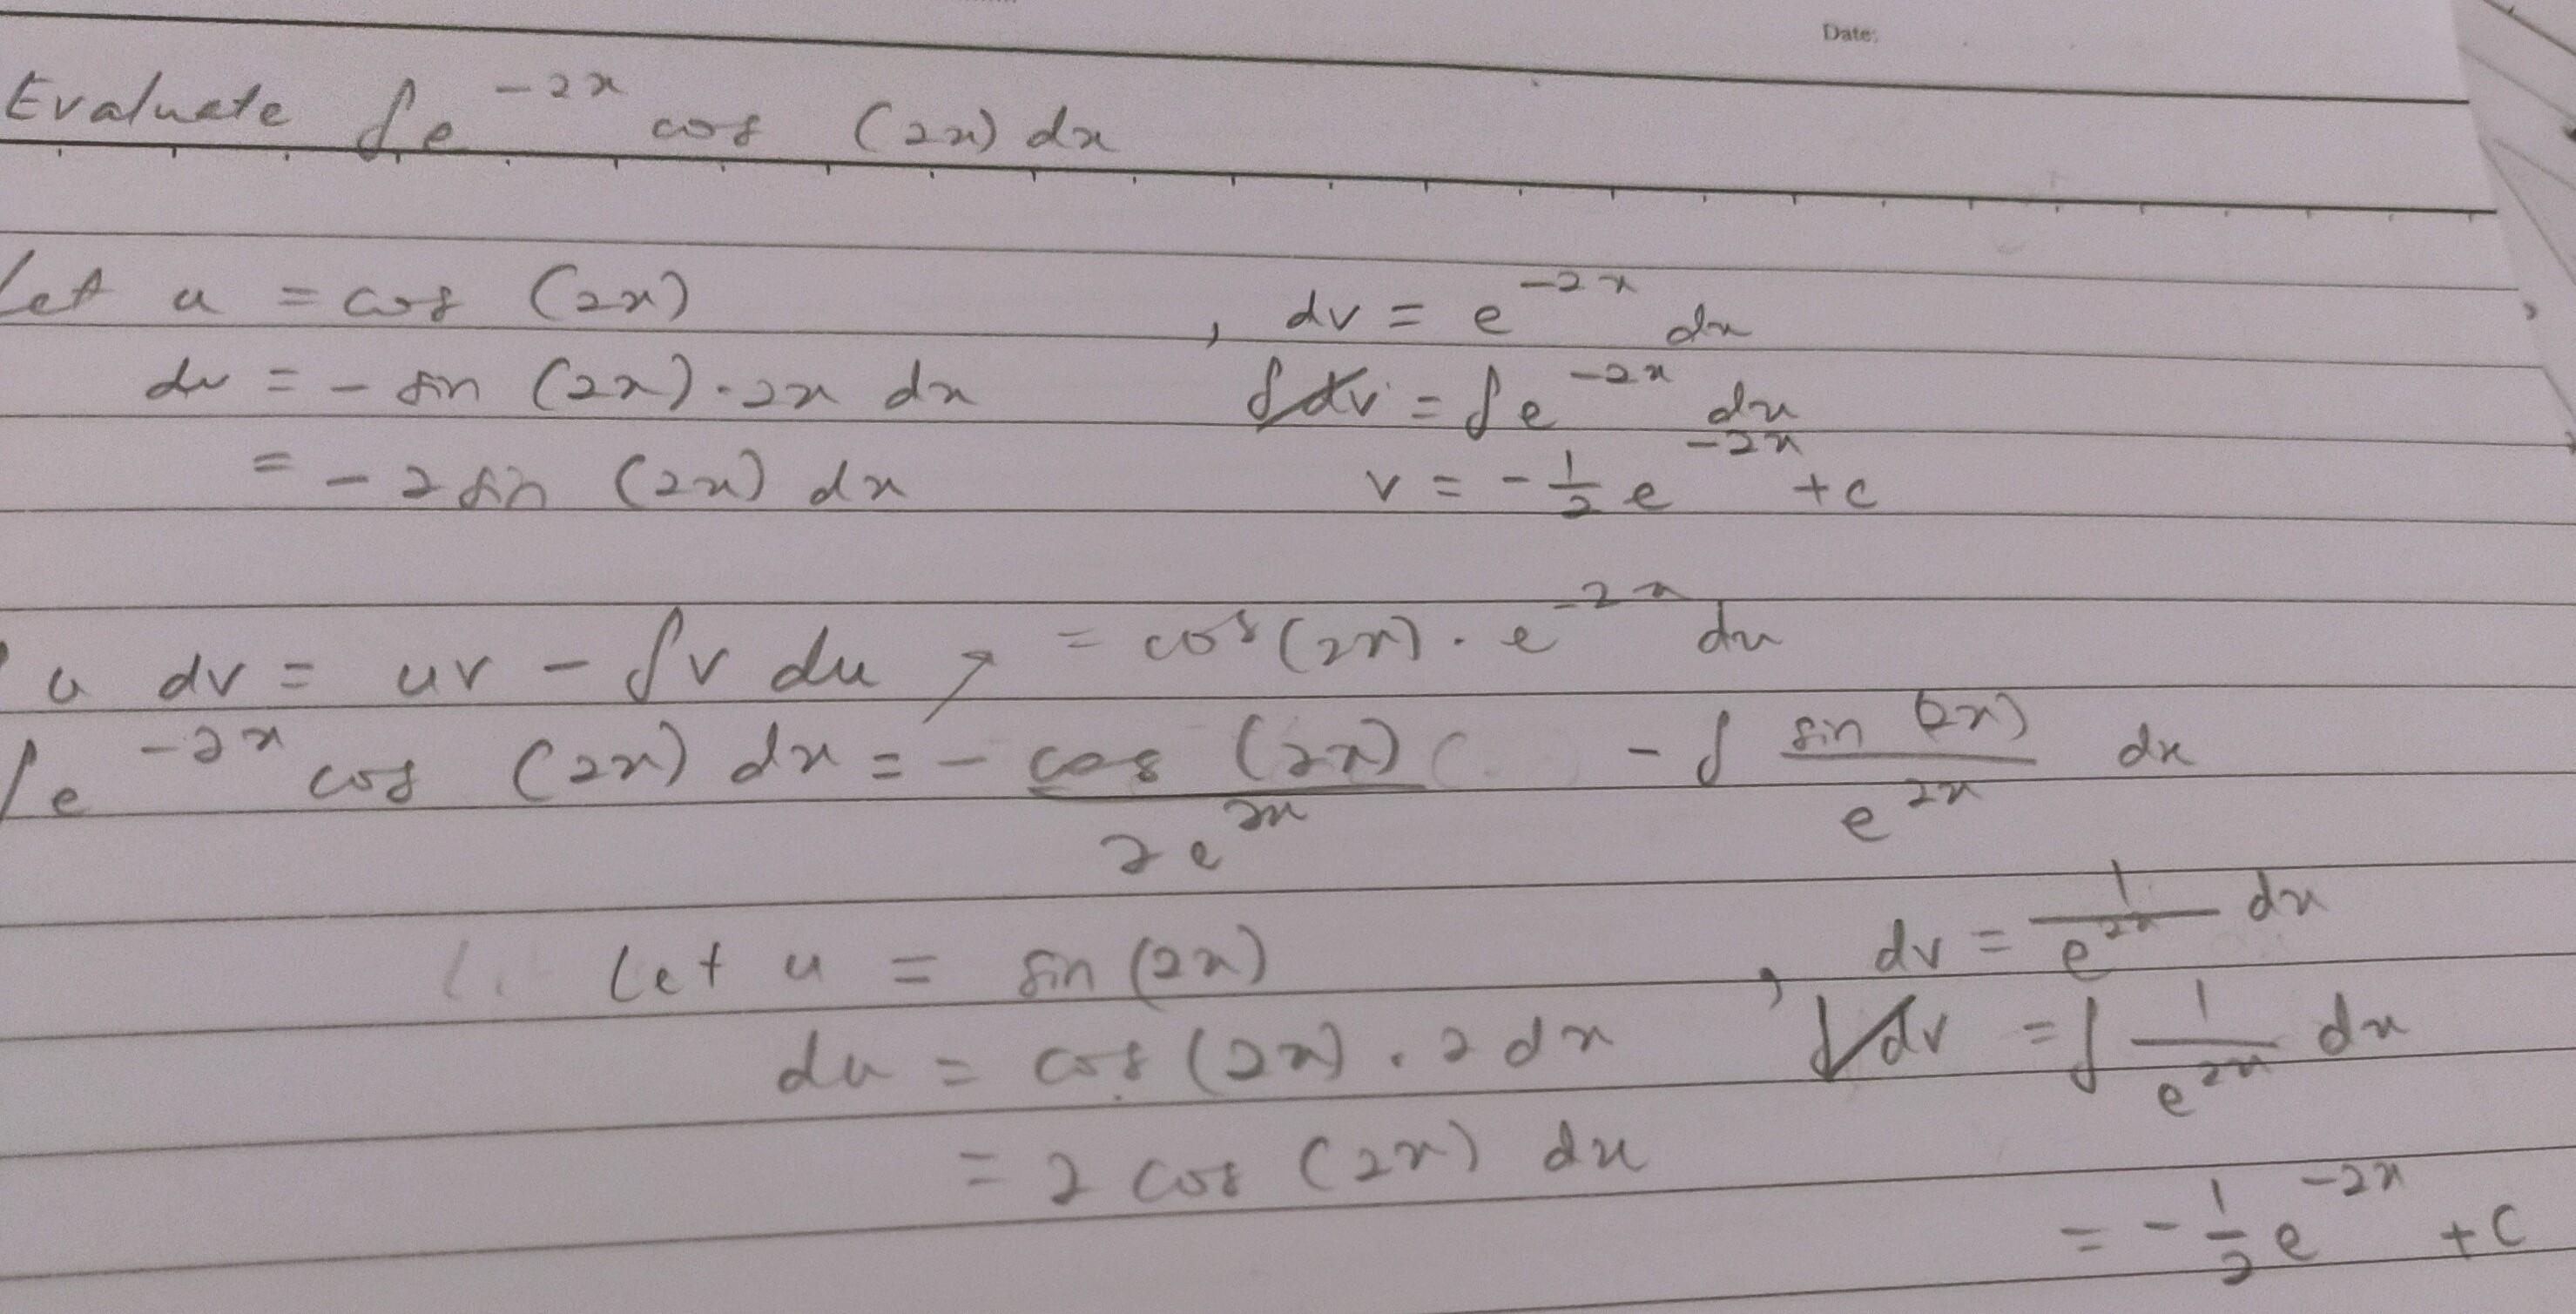 Date:
Evaluate ∫e^{-2x} cos (2x) dx
Let u = cos (2x) , dv = e^{-2x} dx
du = - sin (2x) . 2x dx ∫dv = ∫e^{-2x} dx
= - 2 sin (2x) dx v = -1/2 e^{-2x} + c
u dv = uv - ∫v du ↗ = cos (2x) . e^{-2x} dx
∫e^{-2x} cos (2x) dx = - cos (2x) / 2e^{2x} - ∫ sin (2x) / e^{2x} dx
Let u = sin (2x) , dv = 1/e^{2x} dx
du = cos (2x) . 2 dx ∫dv = ∫ 1/e^{2x} dx
= 2 cos (2x) dx
= -1/2 e^{-2x} + C